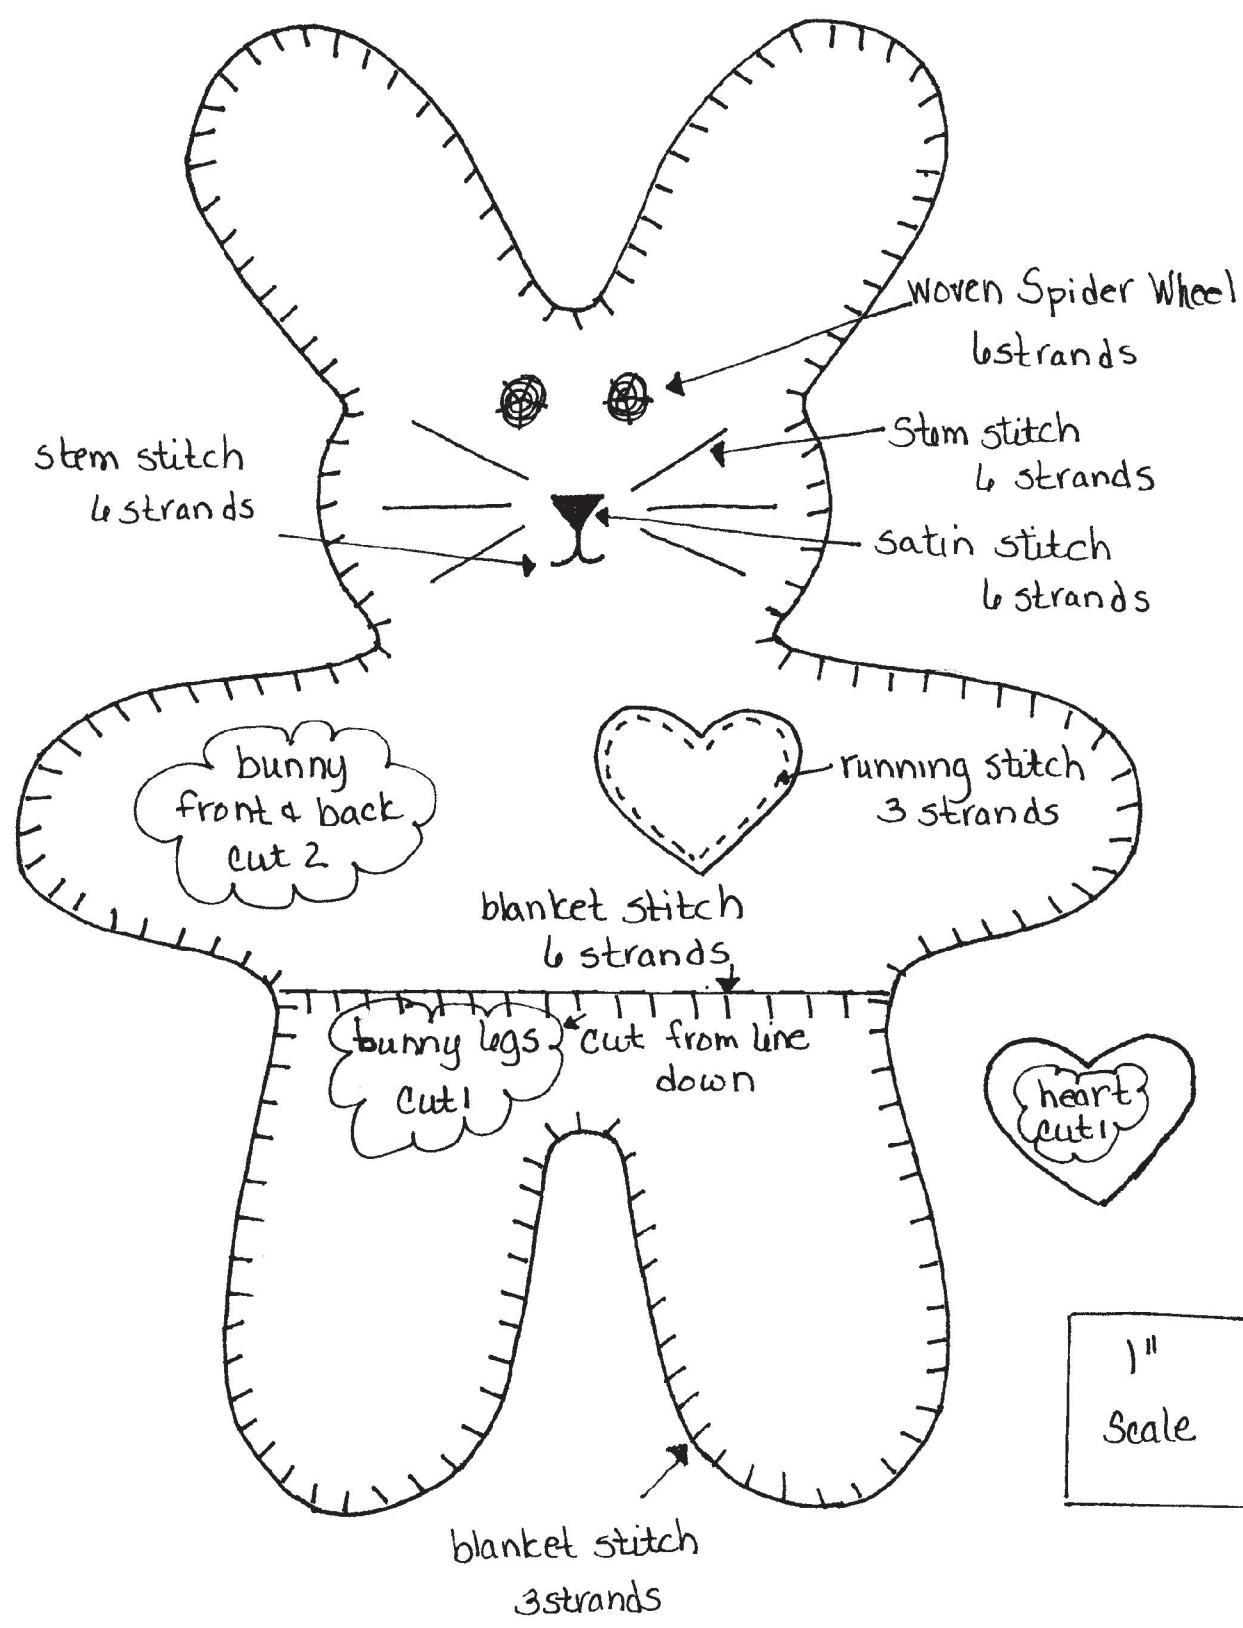 woven Spider Wheel
6strands
Stem stitch
6 strands
stem stitch
6 strands
satin stitch
6 strands
bunny
front & back
cut 2
running stitch
3 strands
blanket stitch
6 strands
bunny legs
cut 1
cut from line
down
heart
cut 1
1"
Scale
blanket stitch
3strands